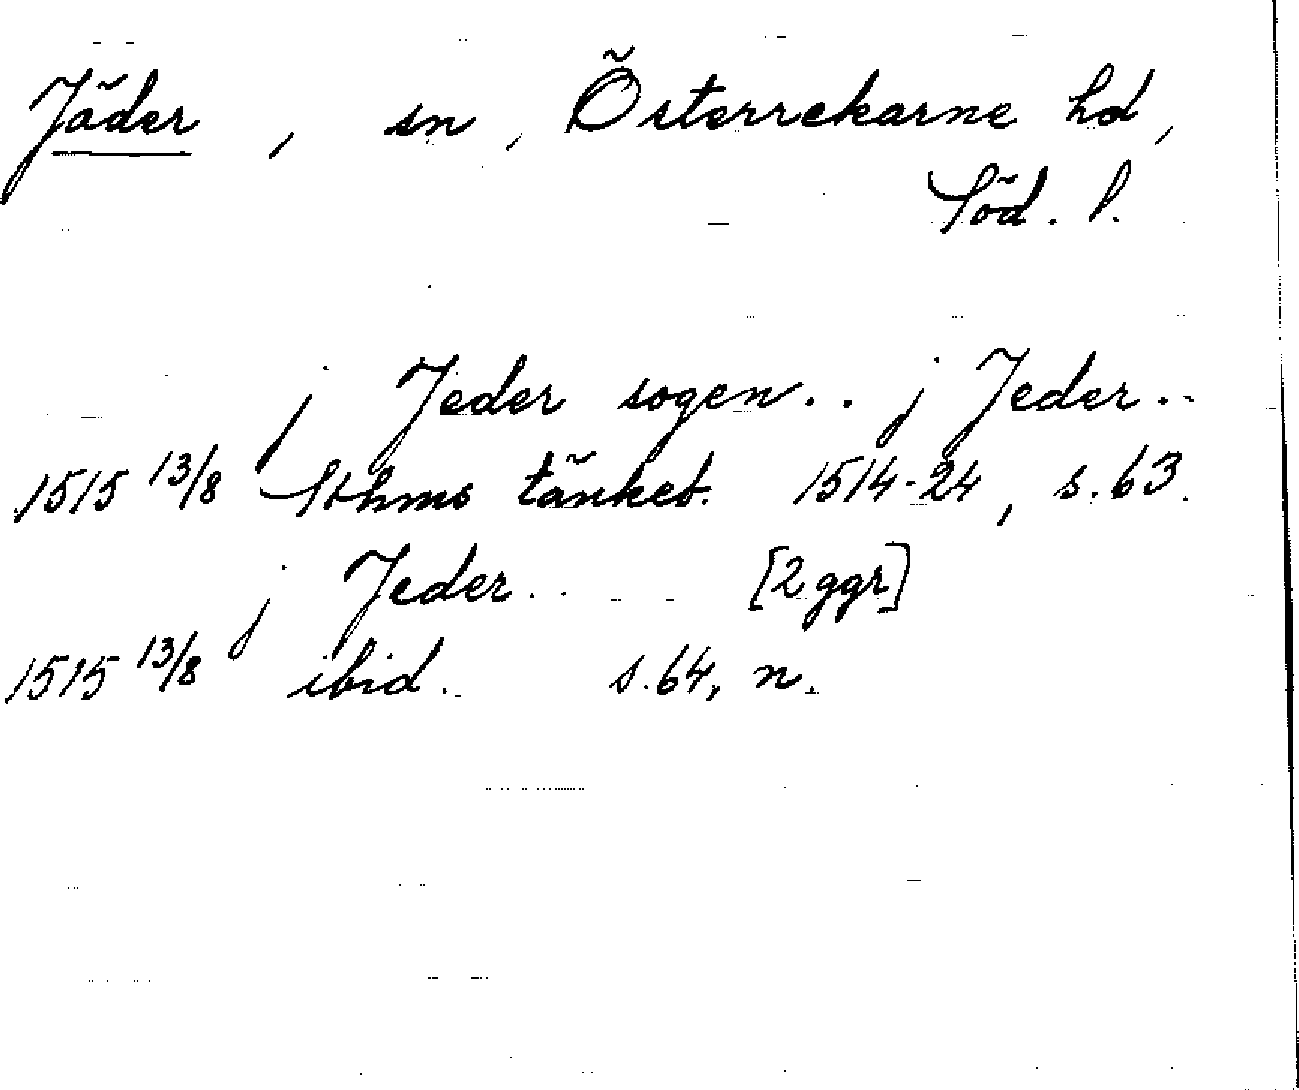 Jäder, sn, Österrekarne hd,
Söd. l.
j Jeder sogen.. j Jeder..
1515 13/8 Sthms tänkeb. 1514-24, s. 63.
j Jeder.. [2 ggr]
1515 13/8 ibid. s. 64, n.